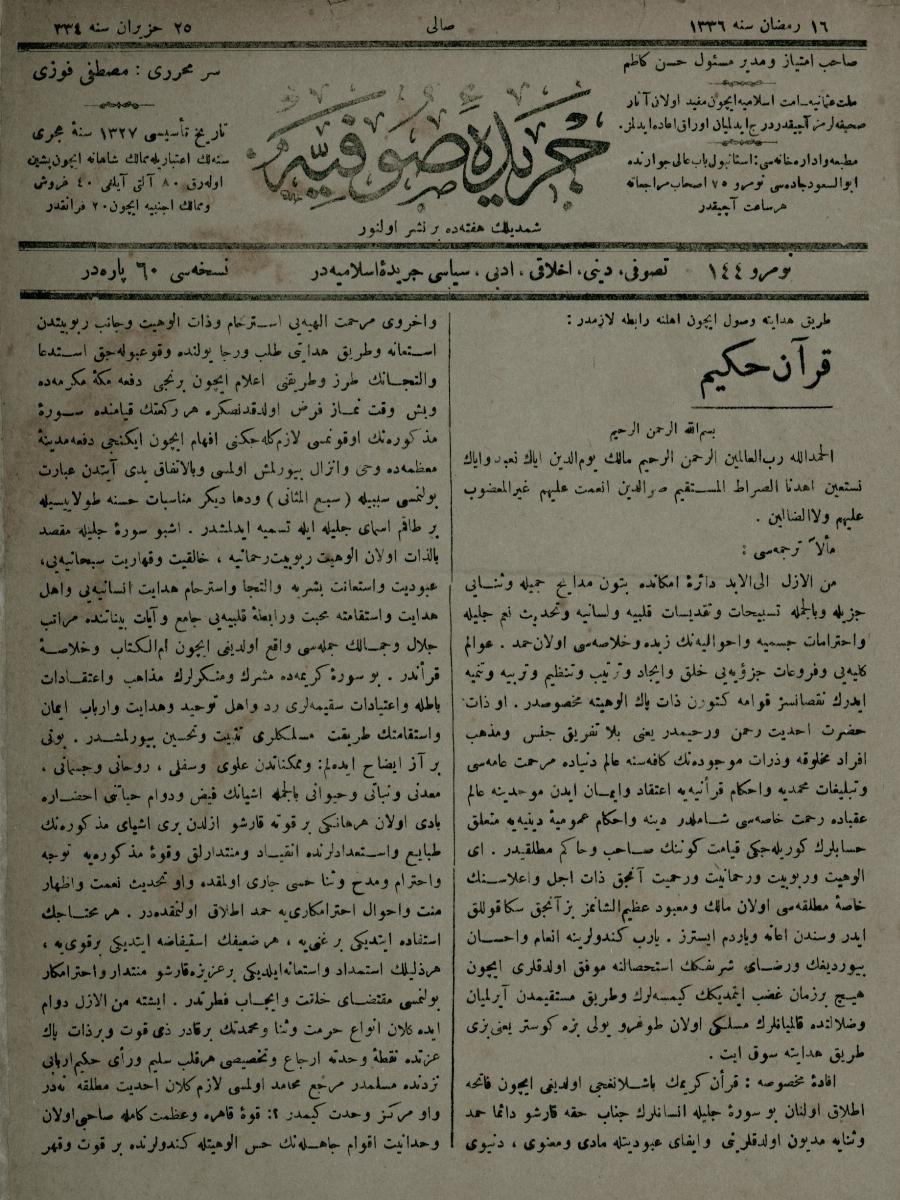 ١٦ رمضان سنه ١٣٣٦
صالى
٢٥ حزيران سنه ٣٣٤
صاحب امتياز و مدير مسئول حسن كاظم
ملت عثمانيه ـ امت اسلاميه ايچون مفيد اولان آثار
صحيفه لرمز آچيقدر درج ايدلميان اوراق اعاده ايدلمز.
مطبعه واداره خانه سى : استانبول باب عالى جوارنده
ابوالسعود جاده سى نومرو ٧٥ اصحاب مراجعاته
هر ساعت آچيقدر
جريدۀ صوفيه
شمديلك هفته ده بر نشر اولنور
سر محررى : مصطفى فوزى
تاريخ تأسيسى ١٣٢٧ سنۀ هجرى
سنه لك اعتباريله ممالك شاهانه ايچون پشين
اوله رق ٨٠ آلتى آيلغى ٤٠ غروش
وممالك اجنبيه ايچون ٢٠ فرانقدر
نومرو ١٤٤
تصوفى ، دينى ، اخلاقى ، ادبى ، سياسى جريدۀ اسلاميه در
نسخه سى ٦٠ پاره در
طريق هدايته وصول ايچون اهلنه رابطه لازمدر :
قرآن حكيم
بسم الله الرحمن الرحيم
الحمدالله رب العالمين الرحمن الرحيم مالك يوم الدين اياك نعبد واياك
نستعين اهدنا الصراط المستقيم صرالدين انعمت عليهم غيرالمغضوب
عليهم ولاالضالين .
مآلاً ترجمه سى :
من الازل الى الابد دائرۀ امكانده بتون مدايح جميله وثنايى
جزيله وبالجمله تسبيحات وتقديسات قلبيه ولسانيه وتحديث نعم جليله
واحترامات جسميه واحواليه نك زبده وخلاصه سى اولان حمد . عوالم
كليه يى وفروعات جزؤيه يى خلق وايجاد وترتيب وتنظيم وتربيه وتنميه
ايدرك نقصانسز قوامه كتورن ذات پاك الوهيته مخصوصدر . او ذات
حضرت احديت رحمن ورحيمدر يعنى بلا تفريق جنس ومذهب
افراد مخلوقه وذرات موجوده نك كافه سنه عالم دنياده مرحمت عامه سى
وتبليغات محمديه واحكام قرأنيه يه اعتقاد وايمان ايدن موحدينه عالم
عقباده رحمت خاصه سى شاملدر دينه واحكام عموميۀ دينيه يه متعلق
حسابلرك كوريله جكى قيامت كوننك صاحب وحاكم مطلقيدر . اى
الوهيت وربوبيت ورحمانيت ورحميت آنجق ذات اجل واعلاسنك
خاصۀ مطلقه سى اولان مالك ومعبود عظيم الشانمز بز آنجق سكا قوللق
ايدر وسندن اعانه وياردم ايسترز . يارب كندولرينه انعام واحسان
بيورديغك ورضاى شريفكك استحصالنه موفق اولدقلرى ايچون
هيچ برزمان غضب ايتمديكك كيمسه لرك وطريق مستقيمدن آيرلميان
وضلالتده قالميانلرك مسلكى اولان طوغرو يولى بزه كوستر يعنى بزى
طريق هدايته سوق ايت .
افادۀ مخصوصه : قرأن كريمك باشلانغجى اولديغى ايچون فاتحه
اطلاق اولنان بو سورۀ جليله انسانلرك جناب حقه قارشو دائما حمد
وثنايه مديون اولدقلرينى وايفاى عبوديتله مادى ومعنوى ، دنيوى
واخروى مرحمت الهيه يى استرحام وذات الوهيت وجانب ربوبيتدن
استعانه وطريق هدايتى طلب ورجا يولنده وقوعبوله جق استدعا
والتجانك طرز وطريقنى اعلام ايچون برنجى دفعه مكۀ مكرمه ده
وبش وقت نماز فرض اولدقدنصكره هر ركعتك قيامنده سورۀ
مذكوره نك اوقونمسى لازم كله جكنى افهام ايچون ايكنجى دفعه مدينۀ
معظمه ده وحى وانزال بيورلمش اولمسى وبالاتفاق يدى آيتدن عبارت
بولنمسى سببيله ( سبع المثانى ) ودها ديكر مناسبات حسنه طولاييسيله
بر طاقم اسماى جليله ايله تسميه ايدلمشدر . اشبو سورۀ جليله مقصد
بالذات اولان الوهيت ربوبيت رحمانيه ، خالقيت وقهاريت سبحانيه يى،
عبوديت واستعانت بشريه والتجا واسترحام هدايت انسانيه يى واهل
هدايت واستقامته محبت ورابطۀ قلبيه يى جامع وآيات بيناتنده مراتب
جلال وجمالك جمله سى واقع اولديغى ايچون ام الكتاب وخلاصۀ
قرأندر . بو سورۀ كريمه ده مشرك ومنكرلرك مذاهب واعتقادات
باطله واعتيادات سقيمه لرى رد واهل توحيد وهدايت وارباب ايمان
واستقامتك طريقت مسلكلرى تثبيت وتحسين بيورلمشدر . بونى
بر آز ايضاح ايده لم: وممكناتدن علوى وسفلى ، روحانى وجسمانى ،
معدنى ونباتى وحيوانى بالجمله اشيانك فيض ودوام حياتنى احضاره
بادى اولان هرهانكى بر قوته قارشو ازلدن برى اشياى مذكوره نك
طبايع واستعدادلرنده انقياد ومنتدارلق وقوۀ مذكوره يه توجه
واحترام ومدح وثنا حسى جارى اولمقده واو تحديث نعمت واظهار
منت واحوال احترامكارى يه حمد اطلاق اولنمقده در . هر محتاجك
استفاده ايتديكى بر غنى يه ، هر ضعيفك استيفاضه ايتديكى برقوى يه ،
هر ذليلك استمداد واستعانه ايلديكى بر عزيزه قارشو منتدار واحترامكار
بولنمسى مقتضاى خلقت وايجاب فطرتدر . ايشته من الازل دوام
ايده كلان انواع حرمت وثنا ومحمدتك برقادر ذى قوت وبرذات پاك
عزتده نقطۀ وحدته ارجاع وتخصيصى هرقلب سليم ورأى حكيم اربابى
نزدنده مسلمدر مرجع محامد اولمسى لازم كلان احديت مطلقه نه در
واو مركز وحدت كيمدر ؟: قوۀ قاهره وعظمت كامله صاحبى اولان
وحدانيت اقوام جاهله نك حس الوهيتله كندولرنده بر قوت وقهر